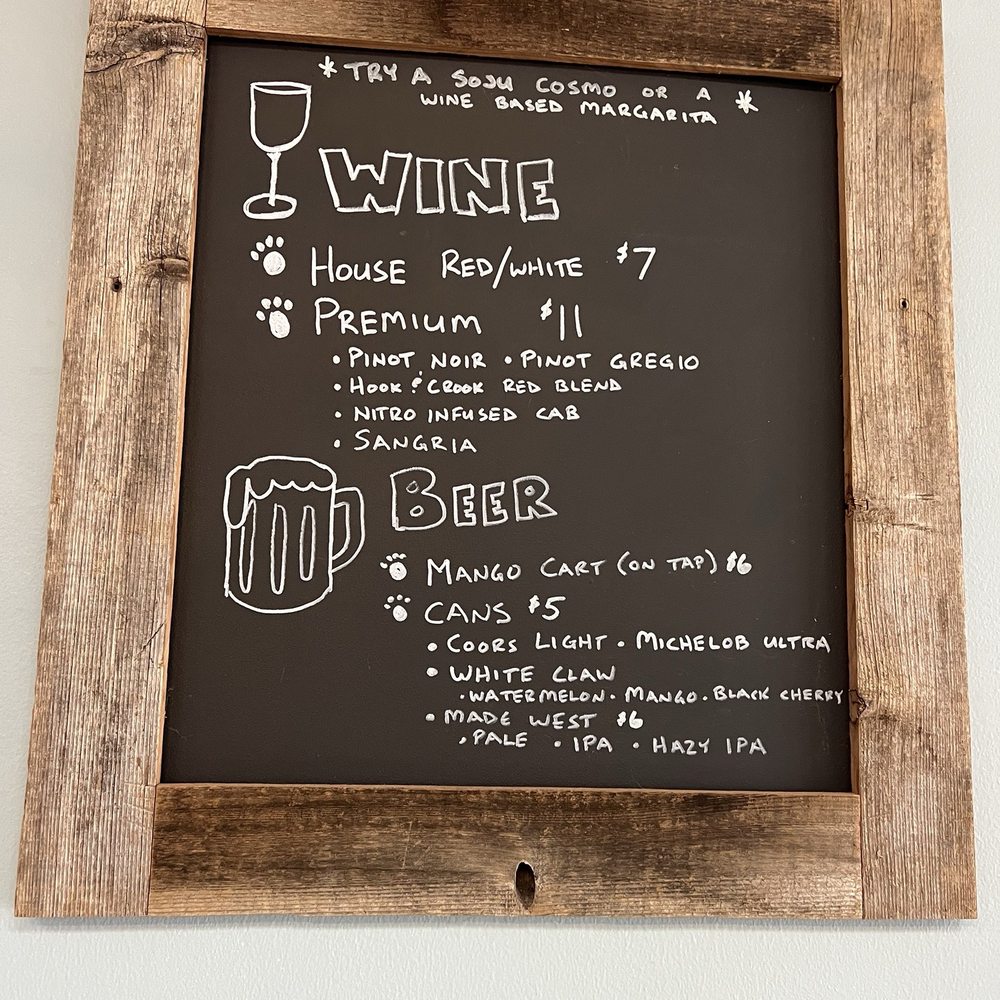 * TRY A SOJU COSMO OR A
WINE BASED MARGARITA *
WINE
HOUSE RED/WHITE $7
PREMIUM $11
• PINOT NOIR • PINOT GREGIO
• HOOK & CROOK RED BLEND
• NITRO INFUSED CAB
• SANGRIA
BEER
MANGO CART (ON TAP) $6
CANS $5
• COORS LIGHT • MICHELOB ULTRA
• WHITE CLAW
• WATERMELON • MANGO • BLACK CHERRY
• MADE WEST $6
• PALE • IPA • HAZY IPA